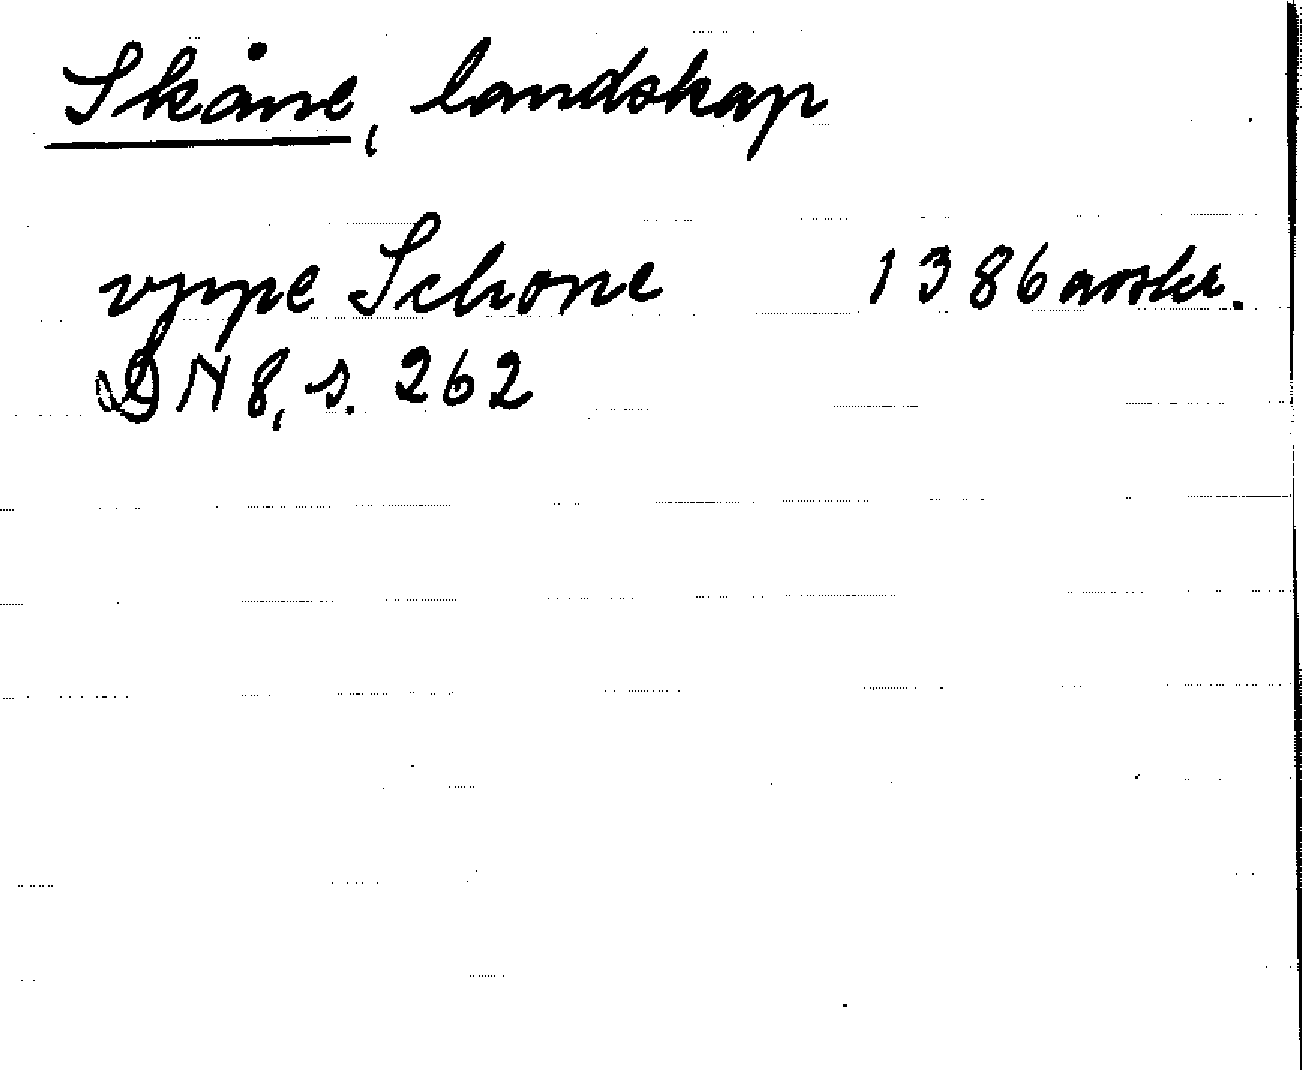 Skåne, landskap
vppe Schone 1386 avskr.
DN 8, s. 262